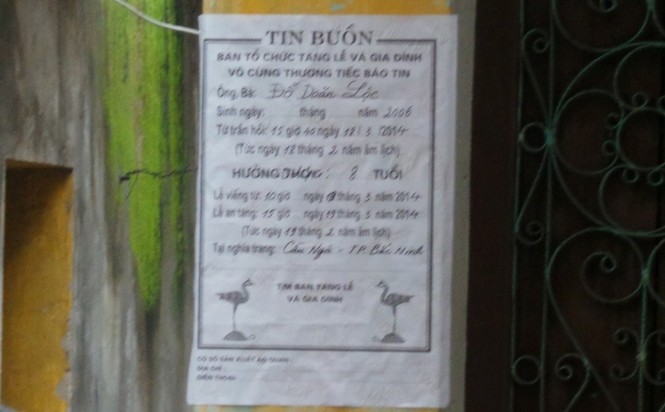 TIN BUỒN
BAN TỔ CHỨC TANG LỄ VÀ GIA ĐÌNH
VÔ CÙNG THƯƠNG TIẾC BÁO TIN
Ông, Bà: Đỗ Doãn Lộc
Sinh ngày: tháng năm 2006
Từ trần hồi: 15 giờ 40 ngày 18 / 3 /2014
(Tức ngày 18 tháng 2 năm âm lịch)
HƯỞNG THỌ: 8 TUỔI
Lễ viếng từ: 10 giờ ngày 19 tháng 3 năm 2014
Lễ an táng: 15 giờ ngày 19 tháng 3 năm 2014
(Tức ngày 19 tháng 2 năm âm lịch)
Tại nghĩa trang: Cầu Ngà - TP. Bắc Ninh
T/M BAN TANG LỄ
VÀ GIA ĐÌNH
CƠ SỞ SẢN XUẤT ÁO QUAN:
ĐỊA CHỈ:
ĐIỆN THOẠI: